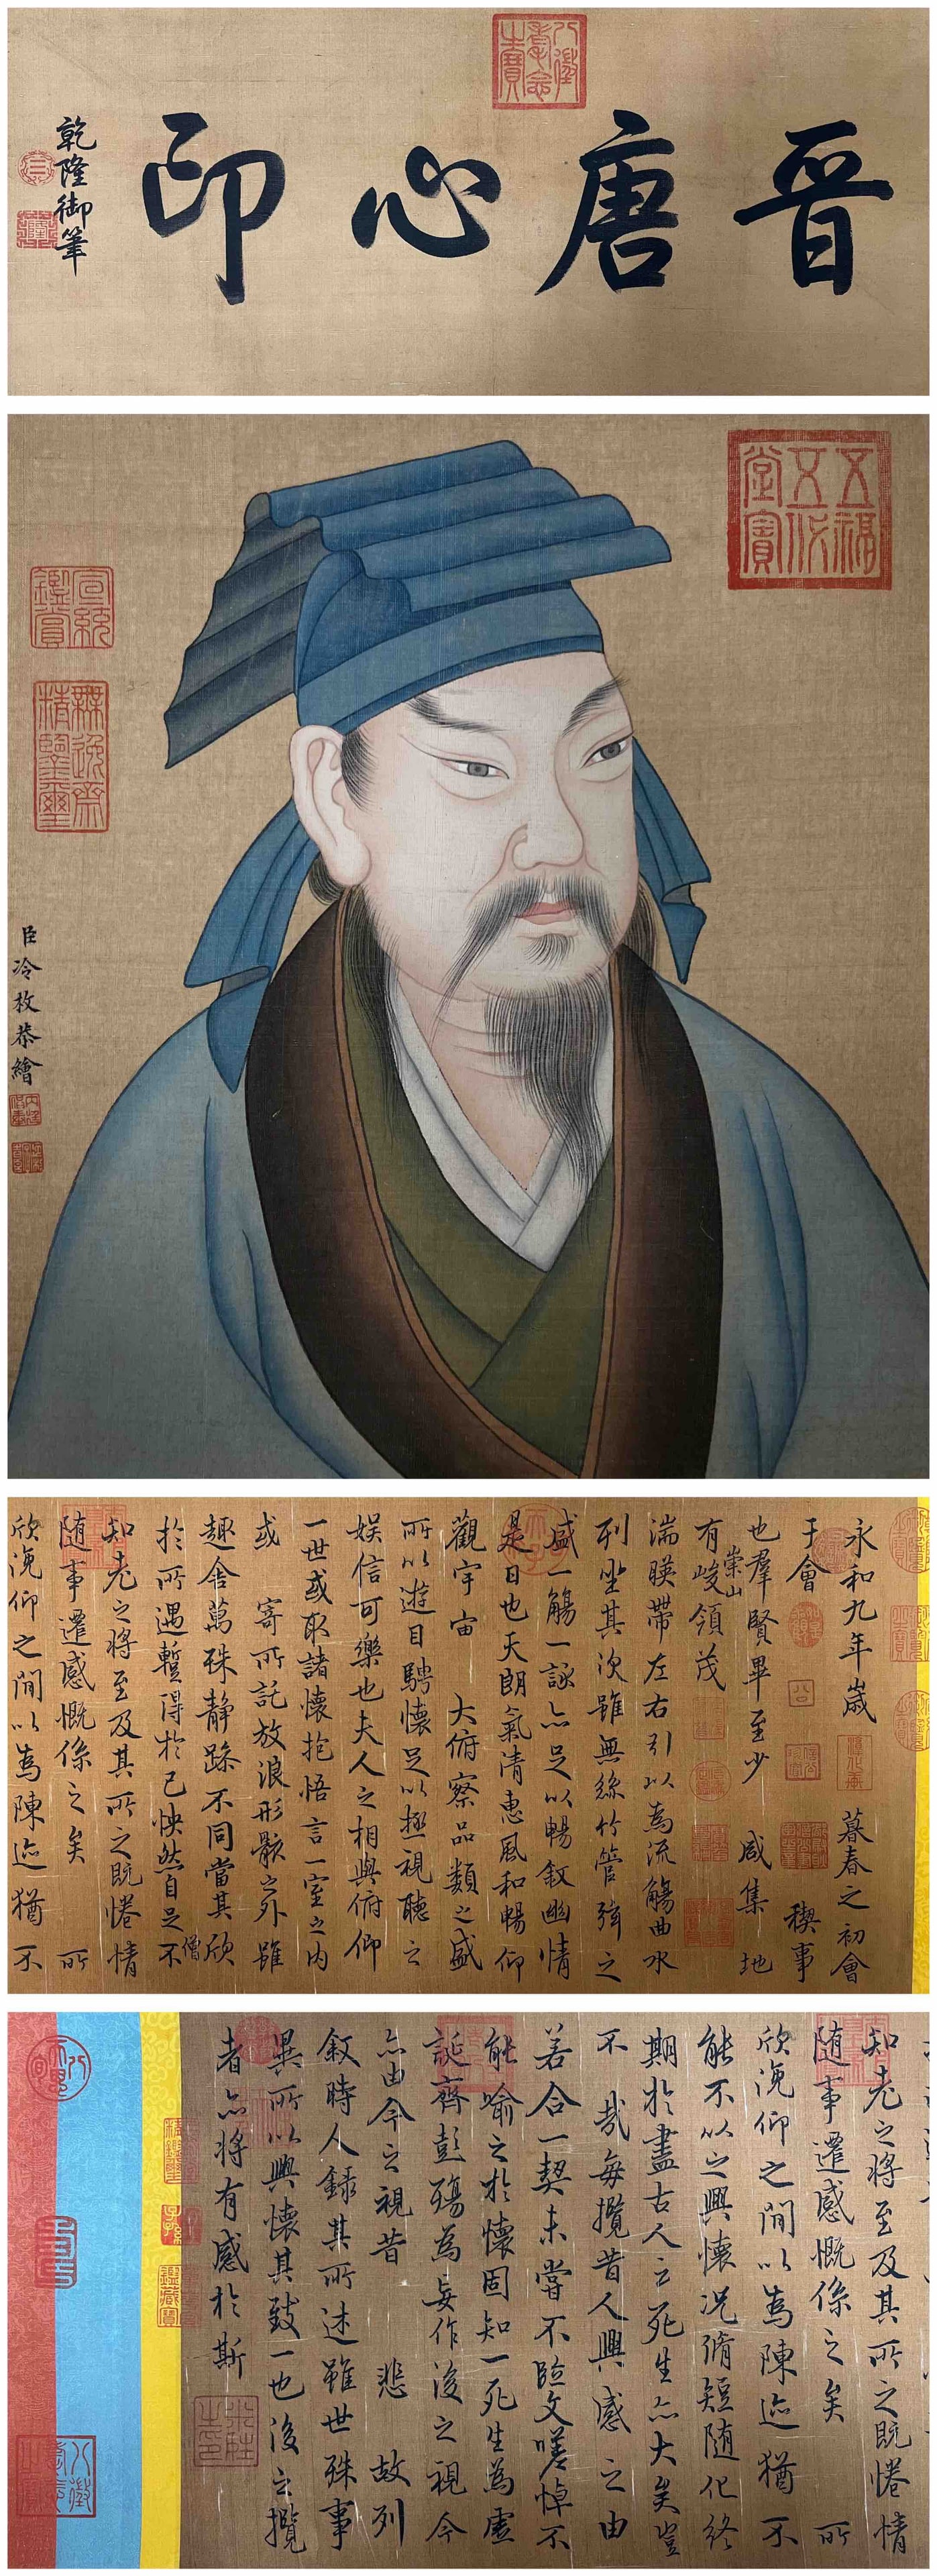 晉唐心印
乾隆御筆
八徵耄念之寶
五福五代堂寶
宣統鑑賞
無逸齋精鑒璽
臣冷枚恭繪
永和九年歲暮春之初會
于會稧事
也羣賢畢至少咸集地
有崇山峻領茂
湍暎帶左右引以為流觴曲水
列坐其次雖無絲竹管弦之
盛一觴一詠亦足以暢敘幽情
是日也天朗氣清惠風和暢仰
觀宇宙大俯察品類之盛
所以遊目騁懷足以極視聽之
娛信可樂也夫人之相與俯仰
一世或取諸懷抱悟言一室之內
或寄所託放浪形骸之外雖
趣舍萬殊靜躁不同當其欣
於所遇蹔得於己怏然自足不
僧
知老之將至及其所之既惓情
隨事遷感慨係之矣所
欣俛仰之間以為陳迹猶不
知老之將至及其所之既惓情
隨事遷感慨係之矣所
欣俛仰之間以為陳迹猶不
能不以之興懷況脩短隨化終
期於盡古人云死生亦大矣豈
不哉每攬昔人興感之由
若合一契未嘗不臨文嗟悼不
能喻之於懷固知一死生為虛
誕齊彭殤為妄作後之視今
亦由今之視昔悲故列
敘時人錄其所述雖世殊事
異所以興懷其致一也後之攬
者亦將有感於斯